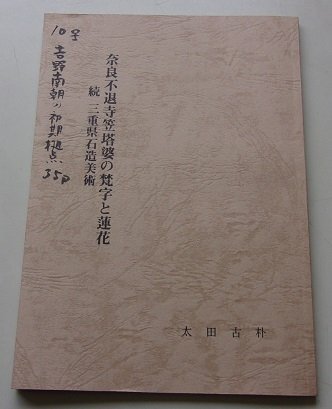 奈良不退寺笠塔婆の梵字と蓮花
続 三重県石造美術
太田古朴
10号
吉野南朝の初期拠点
35P